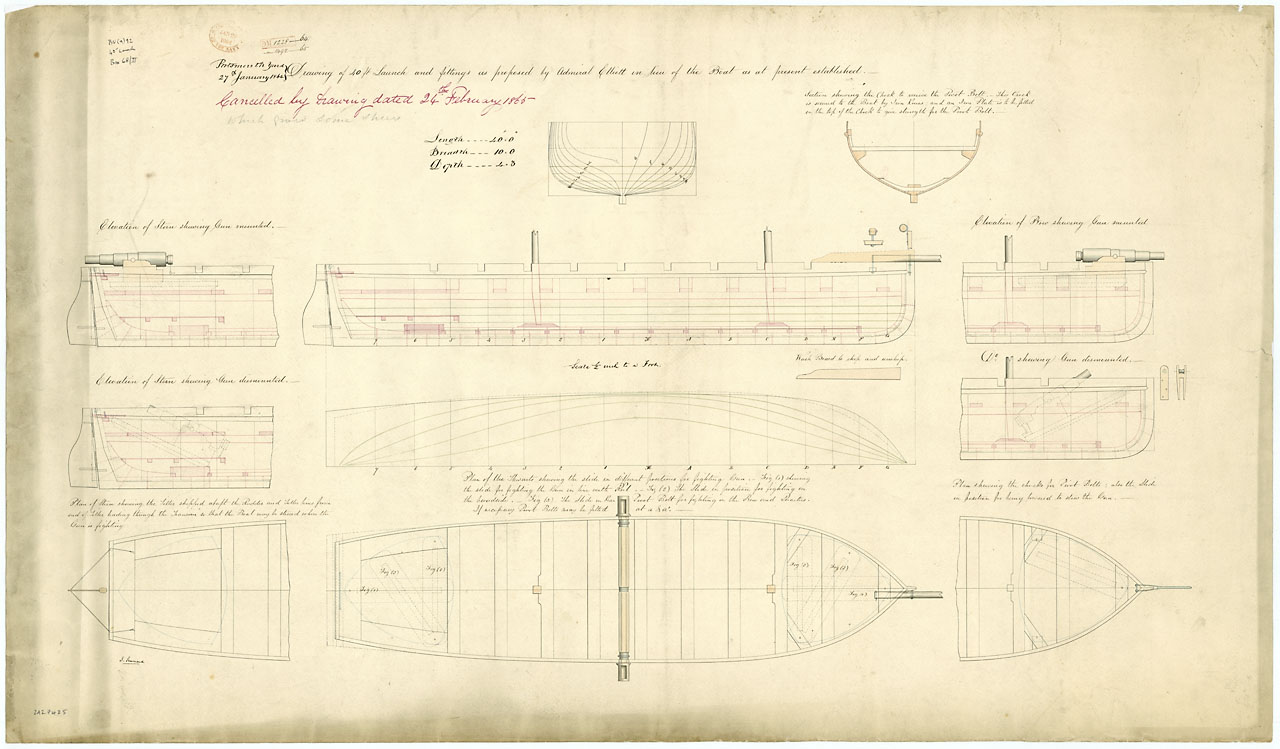 Portsmouth Yard
27th January 1865
Drawing of 40 ft Launch and fittings as proposed by Admiral Elliott in lieu of the Boat as at present established.
Cancelled by Drawing dated 24th February 1865
which gives some sheer
Length ---- 40.0
Breadth --- 10.0
Depth ---- 4.3
Section shewing the Chock to receive the Pivot Bolt. This Chock
is secured to the Boat by Iron Knees, and an Iron Plate is to be fitted
on the top of the Chock to give strength for the Pivot Bolt.
Elevation of Stern shewing Gun mounted.
Elevation of Bow shewing Gun mounted
Scale ½ inch to a Foot.
Wash Board to ship and unship.
Do. shewing Gun dismounted.
Elevation of Stern shewing Gun dismounted.
Plan of the Thwarts shewing the slide in different positions for fighting Gun. Fig (1) shewing
the slide for fighting the Gun in line with Keel. Fig (2) The Slide in position for fighting on
the broadside. Fig (3) The Slide in line Pivot Bolt for fighting on the Bow and Quarter.
If necessary Pivot Bolts may be fitted at a Ra.
Plan shewing the chocks for Pivot Bolts; also the Slide
in position for being lowered to stow the Gun.
Plan of Stern shewing the Tiller shipped abaft the Rudder and Tiller lines from
end of Tiller leading through the Transom so that the Boat may be steered when the
Gun is fighting
Fig (2)
Fig (3)
Fig (1)
Fig (3)
Fig (2)
Fig (1)